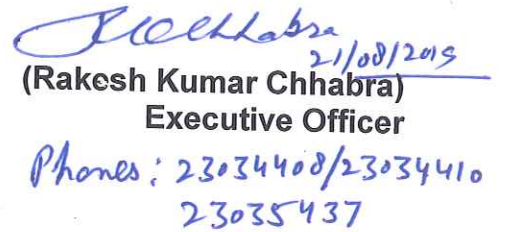 RKChhabra
21/08/2015
(Rakesh Kumar Chhabra)
Executive Officer
Phones: 23034408/23034410
23035437